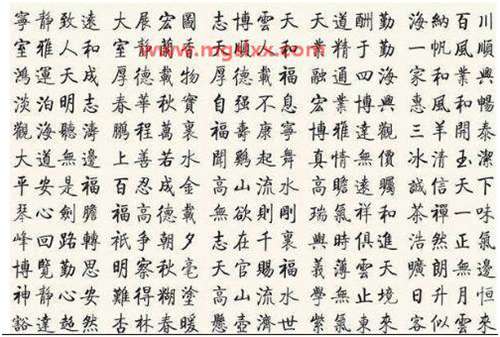 寧靜致遠 大展宏圖 志博雲天 天道酬勤 海納百川
室雅人和 室靜蘭香 大順天和 業精于勤 一帆風順
鴻運天成 厚德載物 厚德載福 融通四海 家和業興
淡泊明志 春華秋實 自強不息 宏業博興 惠風和暢
觀海聽濤 鵬程萬裏 福壽康寧 博雅達觀 三羊開泰
大道無邊 上善若水 聞鷄起舞 真情無價 冰清玉潔
平安是福 百忍成金 高山流水 高瞻遠矚 誠信天下
琴心劍膽 福高德載 無欲則剛 瑞氣祥和 茶禪一味
峰回路轉 祇爭朝夕 志在千裏 興時俱進 浩然正氣
博覽勤思 明察秋毫 天官賜福 義薄雲天 曠朗無邊
神靜心安 難得糊塗 高山流水 學無止境 日升月恒
豁達超然 杏林春暖 懸壺濟世 紫氣東來 客似雲來